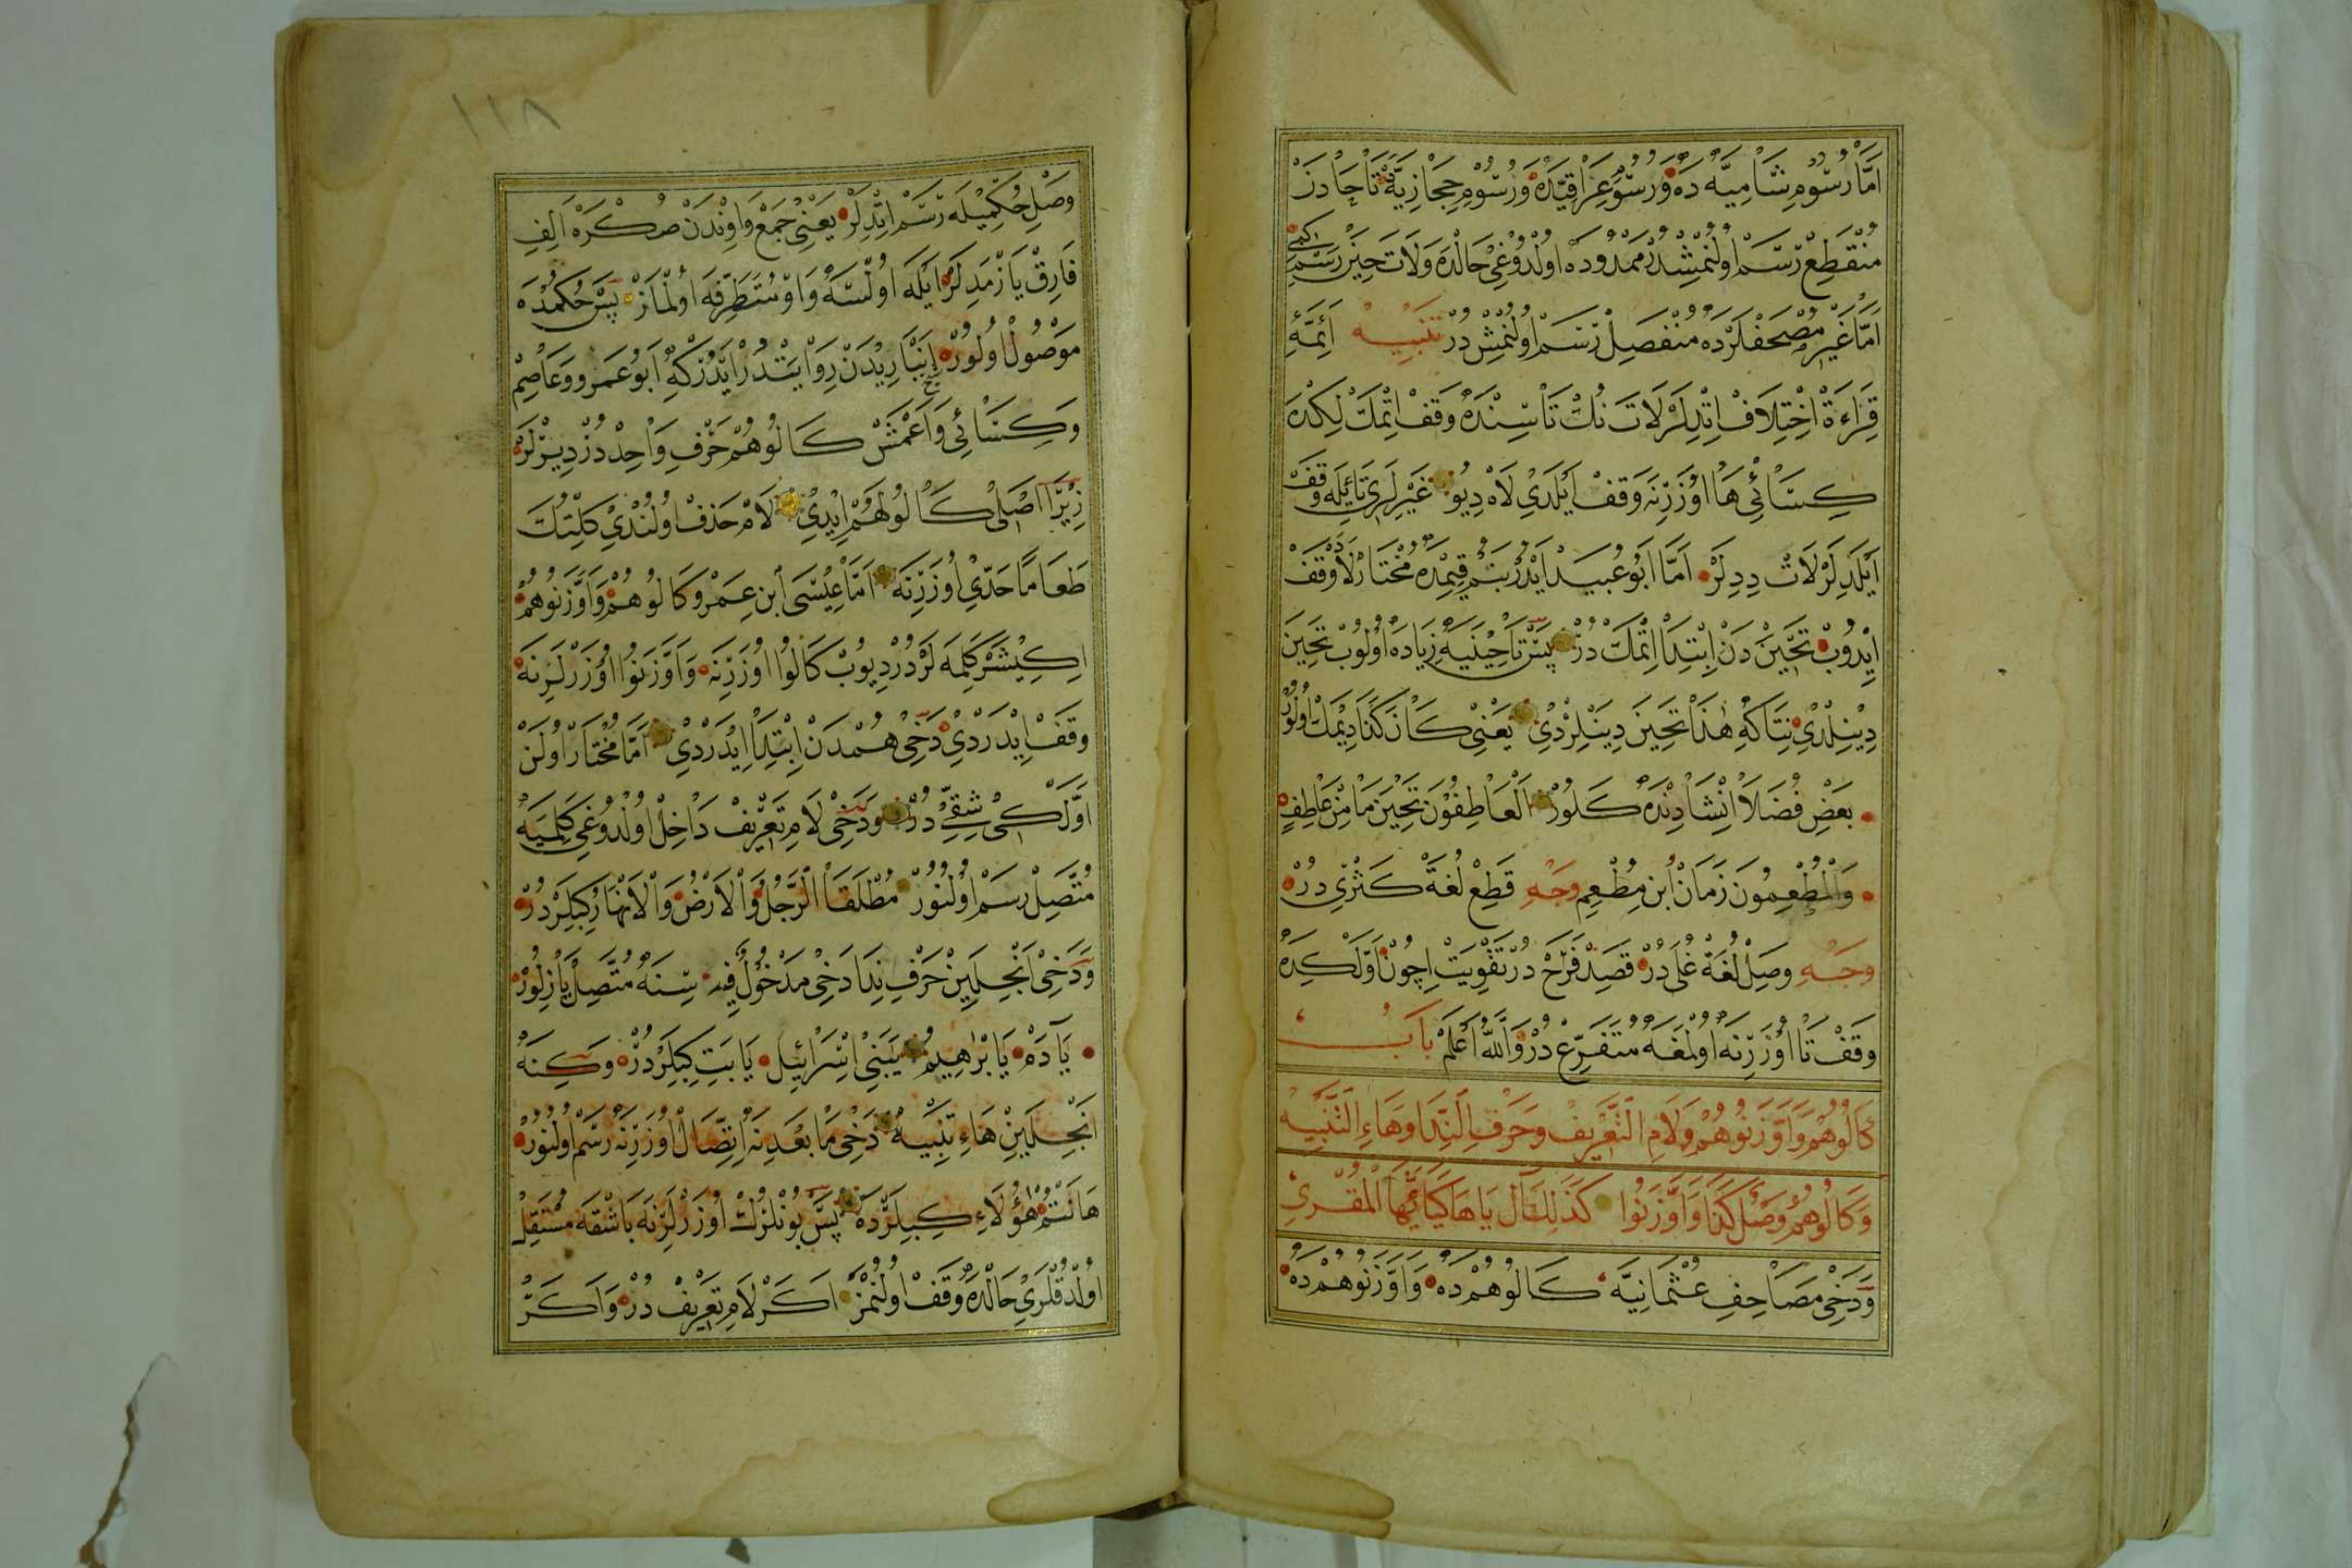 اَمَّا رُسُومِ شَامِيَّه دَه وَرُسُومِ عِرَاقِيَّدَه وَرُسُومِ حِجَازِيَّه تَا حَادَنْ
مُنْقَطِعْ رَسْم اُولُنْمِشْدُرْ مَمْدُودَه اُولْدُوغِى حَالْدَه وَلَاتَ حِينَ رَسْمِ كبى
اَمَّا غَيْرِ مُصْحَفْلَرْدَه مُنْفَصِلْ رَسْم اُولُنْمِشْ دُرْ تَنْبِيهْ اَئِمَّۀِ
قِرَاءَة اِخْتِلَافْ اِتْدِلَرْ لَاتَ نُكْ تَاسِنْدَه وَقَفْ اِتْمَكْ لِكْدَه
كِسَائِى هَا اُوزَرِنَه وَقَفْ اَيْلَدِى لَاهْ دِيُو غَيْرِلَرِى تَايِلَه وَقَفْ
اَيْلَدِلَرْ لَاتْ دِدِلَرْ اَمَّا اَبُو عُبَيد اَيْدُرْ بَنُمْ قِتِمْدَه مُخْتَارْ لَا وَقَفْ
اِيْدُوبْ تَحِينَ دَنْ اِبْتِدَا اِتْمَكْ دُرْ پَسْ تَا حِينَيِه زِيَادَه اُولُوبْ تَحِينَ
دِيْنِلْدِى نِتَاكِه هٰذَا تَحِينَ دِيْنِلِرْدِى يَعْنِى كَانَ كَذَا دِيْمَكْ اُولُورْ
بَعْضِ فُضَلَا اِنْشَادِنْدَه كَلُورْ اَلْعَاطِفُونَ تَحِينَ مَا مِنْ عَاطِفٍ
وَالْمُطْعِمُونَ زَمَانَ اَبْنَ مُطْعِمِ وَجْهِ قَطِعْ لُغَة كَثْرَى دُرْ
وَجْهِ وَصِلْ لُغَة غُلَى دُرْ قَصِدْ فَرَّحْ دُرْ تَقْوِيَتْ اِچُونْ اَوَّلْكِدَه
وَقَفْ تَا اُوزَرِنَه اُولْمَغَه مُتَفَرِّعْ دُرْ وَاللّٰهُ اَعْلَمْ بَابُ
كَالُوهُمْ وَاَوَّزَنُوهُمْ وَلَامِ التَّعْرِيفْ وَحَرْفِ النِّدَا وَهَاءِ التَّنْبِيهْ
وَكَالُوهُمْ وَصْلٌ كَذَا وَاَوَّزَنُوا كَذٰلِكَ اَلْ يَا هَا كَيَا اَيُّهَا الْمُقْرِى
وَدَخِى مَصَاحِفِ عُثْمَانِيَّه كَالُوهُمْ دَه وَاَوَّزَنُوهُمْ دَه
١١٨
وَصْلِ حُكْمِيْلَه رَسْم اِتْدِلَرْ يَعْنِى جَمْعِ وَاوِنْدَنْ صُكْرَه اَلِفِ
فَارِقْ يَازْمَدِلَرْ اَيْلَه اُولْسَه وَاوْ مُتَطَرِّفَه اُولْمَازْ پَسْ حُكْمُدَه
مَوْصُولْ اُولُورْ اِبْنِ اَنْبَارِيْدَنْ رِوَايَتْدُرْ اَيْدُرْكِه اَبُو عَمَرو وَعَاصِمْ
وَكِسَائِى وَاَعْمَشْ كَالُوهُمْ حَرْفِ وَاحِدْ دُرْ دِيرْلَرْ
زِيرَا اَصْلِى كَالُوا لَهُمْ اِيْدِى لَامْ حَذْفْ اُولُنْدِى كِلْتُكَ
طَعَامًا حَدِّى اُوزَرِنَه اَمَّا عِيسَى اَبْنِ عِمَرْ وكَالُوهُمْ وَاَوَّزَنُوهُمْ
اِكِيْشَرْ كَلِمَه لَرْدُرْ دِيُوبْ كَالُوا اُوزَرِنَه وَاَوَّزَنُوا اُوزَرْلَرِنَه
وَقَفْ اِيْدَرْدِى دَخِى هُمْدَنْ اِبْتِدَا اِيْدَرْدِى اَمَّا مُخْتَارْ اُولَنْ
اَوَّلْكِى شِقِّى دُرْ وَدَخِى لَامِ تَعْرِيفْ دَاخِلْ اُولْدُوغِى كَلِمَيَه
مُتَّصِلْ رَسْم اُولُنُورْ مُطْلَقَا اَلرَّجُلُ وَالْاَرْضُ وَالْاَنْهَارُ كِبِلَرْ دُرْ
وَدَخِى اَنْجِلَيِنْ حَرْفِ نِدَا دَخِى مَدْخُولُ فِيهِ سِنَه مُتَّصِلْ يَازِلُورْ
يَآدَمُ يَابْرٰهِيمُ يٰبَنِى اِسْرَائِيلَ يَابَتِ كِبِلَرْدُرْ وَكِنَه
اَنْجِلَيِنْ هَاءِ تَنْبِيه دَخِى مَابَعْدِنَه اِتِّصَالْ اُوزَرِنَه رَسْم اُولُنُورْ
هَانْتُمْ هٰؤُلَاءِ كِبِلَرْدَه پَسْ بُونْلَرُكْ اُوزَرْلَرِنَه بَاشْقَه مُسْتَقِلْ
اُولْدُقْلَرِى حَالْدَه وَقَفْ اُولُنْمَزْ اَكَرْ لَامِ تَعْرِيفْ دُرْ وَاَكَرْ